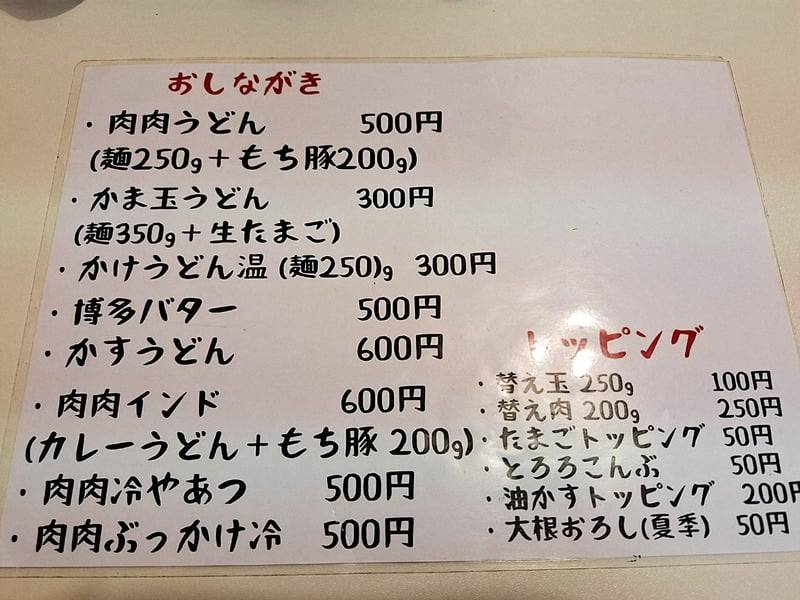 おしながき
・肉肉うどん 500円
(麺250g＋もち豚200g)
・かま玉うどん 300円
(麺350g＋生たまご)
・かけうどん温 (麺250)g 300円
・博多バター 500円
・かすうどん 600円
・肉肉インド 600円
(カレーうどん＋もち豚 200g)
・肉肉冷やあつ 500円
・肉肉ぶっかけ冷 500円
トッピング
・替え玉 250g 100円
・替え肉 200g 250円
・たまごトッピング 50円
・とろろこんぶ 50円
・油かすトッピング 200円
・大根おろし(夏季) 50円